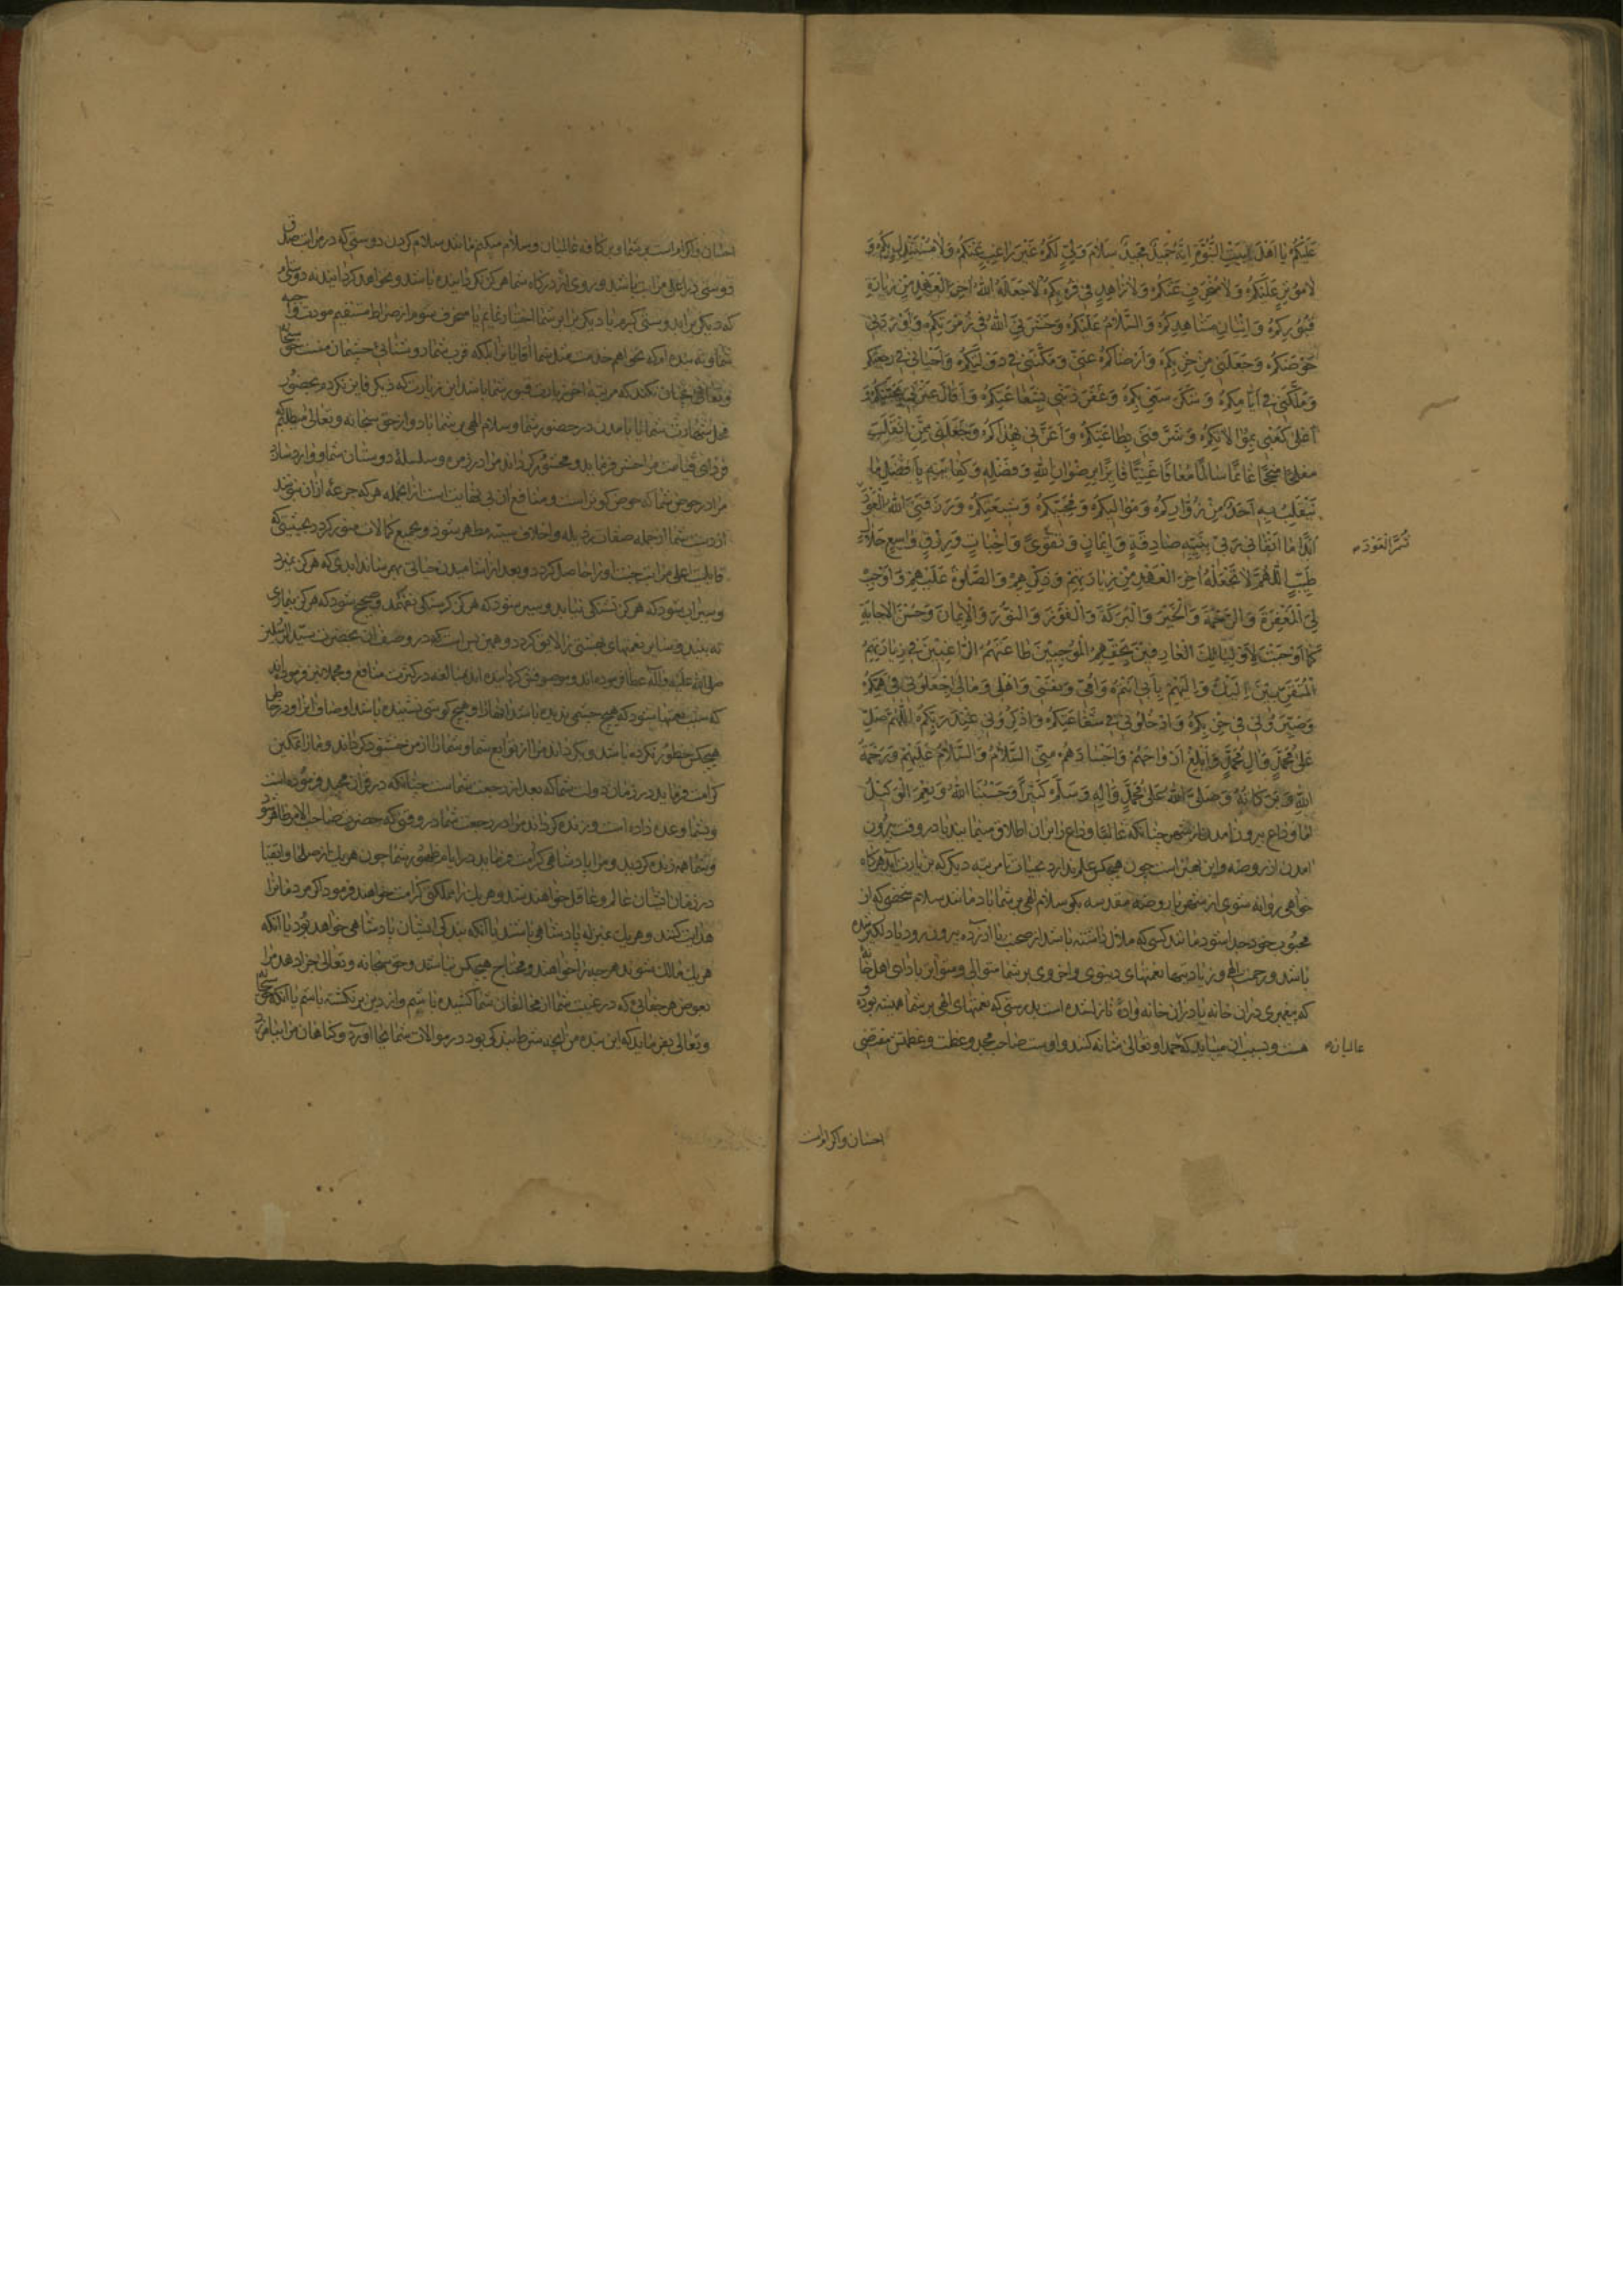 عَلَيْكُمْ يا اَهْلَ بَيْتِ النُّبُوَّةِ اِنَّهُ حَميدٌ مَجيدٌ سَلامَ وَلِيٍّ لَكُمْ غَيْرَ راغِبٍ عَنْكُمْ وَلا مُسْتَبْدِلٍ بِكُمْ وَ
لا مُؤْثِرٍ عَلَيْكُمْ وَلا مُنْحَرِفٍ عَنْكُمْ وَلا زاهِدٍ في قُرْبِكُمْ لا جَعَلَهُ اللهُ اخِرَ الْعَهْدِ مِنْ زِيارَةِ
قُبُورِكُمْ وَاِتْيانِ مَشاهِدِكُمْ وَالسَّلامُ عَلَيْكُمْ وَحَشَرَنِيَ اللهُ في زُمْرَتِكُمْ وَاَوْرَدَني
حَوْضَكُمْ وَجَعَلَني مِنْ حِزْبِكُمْ وَاَرْضاكُمْ عَنّي وَمَكَّنَني في دَوْلَتِكُمْ وَاَحْياني في رَجْعَتِكُمْ
وَمَلَّكَني في اَيّامِكُمْ وَشَكَرَ سَعْيي بِكُمْ وَغَفَرَ ذَنْبي بِشَفاعَتِكُمْ وَاَقالَ عَثْرَتي بِمَحَبَّتِكُمْ وَ
اَعْلى كَعْبي بِمُوالاتِكُمْ وَشَرَّفَني بِطاعَتِكُمْ وَاَعَزَّني بِهُداكُمْ وَجَعَلَني مِمَّنْ انْقَلَبَ
مُفْلِحًا مُنْجِحًا غانِمًا سالِمًا مُعافًا غَنِيًّا فائِزًا بِرِضْوانِ اللهِ وَفَضْلِهِ وَكِفايَتِهِ بِاَفْضَلِ ما
يَنْقَلِبُ بِهِ اَحَدٌ مِنْ زُوّارِكُمْ وَمَواليكُمْ وَمُحِبّيكُمْ وَشيعَتِكُمْ وَرَزَقَنِيَ اللهُ الْعَوْدَ
ثُمَّ الْعَوْدَ
اَبَدًا ما اَبْقاني رَبّي بِنِيَّةٍ صادِقَةٍ وَايمانٍ وَتَقْوى وَاِخْباتٍ وَرِزْقٍ واسِعٍ حَلالٍ
طَيِّبٍ اَللّهُمَّ لا تَجْعَلْهُ اخِرَ الْعَهْدِ مِنْ زِيارَتِهِمْ وَذِكْرِهِمْ وَالصَّلوةِ عَلَيْهِمْ وَاَوْجِبْ
لِيَ الْمَغْفِرَةَ وَالرَّحْمَةَ وَالْخَيْرَ وَالْبَرَكَةَ وَالْفَوْزَ وَالنُّورَ وَالْايمانَ وَحُسْنَ الْاِجابَةِ
كَما اَوْجَبْتَ لِاَوْلِيائِكَ الْعارِفينَ بِحَقِّهِمْ الْمُوجِبينَ طاعَتَهُمْ الرّاغِبينَ في زِيارَتِهِمْ
الْمُتَقَرِّبينَ اِلَيْكَ وَاِلَيْهِمْ بِاَبي اَنْتُمْ وَاُمّي وَنَفْسي وَاَهْلي وَمالي اِجْعَلُوني في هَمِّكُمْ
وَصَيِّرُوني في حِزْبِكُمْ وَاَدْخِلُوني في شَفاعَتِكُمْ وَاذْكُرُوني عِنْدَ رَبِّكُمْ اَللّهُمَّ صَلِّ
عَلى مُحَمَّدٍ وَالِ مُحَمَّدٍ وَاَبْلِغْ اَرْواحَهُمْ وَاَجْسادَهُمْ مِنِّي السَّلامَ وَالسَّلامُ عَلَيْهِمْ وَرَحْمَةُ
اللهِ وَبَرَكاتُهُ وَصَلَّى اللهُ عَلى مُحَمَّدٍ وَالِهِ وَسَلَّمَ كَثيرًا وَحَسْبُنَا اللهُ وَنِعْمَ الْوَكيلُ
اما وداع بيرون امدن از شهر چنانكه غالبًا وداع را بران اطلاق مينمايند يا در وقت بيرون
امدن از روضه واين بهتر است چون هيچكس علم ندارد بحيات تا مرتبه ديكر كه بزيارت آيد هركاه
خواهى روانه شوى از شهر يا روضه مقدسه بكو سلام الهى بر شما باد مانند سلام شخصى كه از
محبوب خود جدا شود نه مانند كسى كه ملال داشته باشد از صحبت يا آزرده بيرون رود يا دلكير شده
باشد ورحمت الهى وزيادتيها نعمتهاى دنيوى واخروى بر شما متوالى ومتواتر باد اى اهل خانه
كه پيغمبرى دران خانه يا دران خانواده نازل شده است بدرستى كه نعمتهاى الهى بر شما هميشه بوده و
هست وبسبب ان ميبايد كه حمد او تعالى شانه كنند واوست صاحب مجد وعظمت وعظمتش مقتضى
عالميانه
احسان واكرامست
احسان واكرامست بر شما وبر كافه عالميان وسلام ميكنم مانند سلام كردن دوستى كه در مراتب صدق
دوستى در اعلى مراتب باشد وروى از دركاه شما هركز نكردانيده باشد ونخواهد كردانيد نه دوستى
كه ديكرى را بدوستى كيرم يا ديكرى را بر شما اختيار نمايم يا منحرف شوم از صراط مستقيم مودت
شما ونه بنده ام كه نخواهم خدمت مثل شما اقايان را بلكه قرب شما روشنائى چشمان منست حق سبحانه
وتعالى چنان نكند كه مرتبه اخر زيارت قبور شما باشد اين زيارت كه ديكر فايز نكردم بحضور
محل شهادت شما يا بامدن در حضور شما وسلام الهى بر شما باد واز حق سبحانه وتعالى ميطلبم كه
فرداى قيامت مرا حشر فرمايد ومحشور كرداند مرا در زمره وسلسله دوستان شما ووارد سازد
مرا در حوض شما كه حوض كوثر است ومنافع ان بى نهايت است از انجمله هركه جرعه ازان بنوشد
از دست شما از جمله صفات رذيله واخلاق سيئه مطهر شود وبجميع كمالات منور كردد بحيثيتى كه
قابليت اعلى مراتب جنت او را حاصل كردد وبعد از اشاميدن حياتى بهم رساند ابدى كه هركز نميرد
وسيراب شود كه هركز تشنكى نيابد وسير شود كه هركز كرسنكى نفهمد وصحيح شود كه هركز بيمارى
نه بيند وساير نعمتهاى بهشتى را لايق كردد وهمين بس است كه در وصف ان بحضرت سيد المرسلين
صلى الله عليه وآله عطا فرموده اند وموصوف كردانيده اند بمبالغه در كثرت منافع ومحمد نيز فرموده اند
كه سبب نعمتها شود كه هيچ چشمى نديده باشد انها را وهيچ كوشى نشنيده باشد اوصاف انرا ودر خاطر
هيچكس خطور نكرده باشد وبكرداند مرا از توابع شما وشما را از من خشنود كرداند ومرا تمكين
كرامت فرمايد در زمان دولت شما كه بعد از رجعت شماست چنانكه در قرآن مجيد فرموده است
وبشما وعده داده است وزنده كرداند مرا در رجعت شما در وقتى كه حضرت صاحب الامر ظاهر شود
وشما همه زنده كرديد ومرا پادشاهى كرامت فرمايد در ايام ظهور شما چون هريك از صلحا واتقيا
در زمان ايشان عالم وعاقل خواهند شد وهريك را مملكتى كرامت خواهند فرمود اكر مردمان را
هدايت كنند وهريك بمنزله پادشاهى باشند يا آنكه بندكى ايشان پادشاهى خواهد بود يا آنكه
هريك مالك شوند هرچه را خواهند ومحتاج هيچكس نباشند وحق سبحانه وتعالى جزا دهد مرا
بعوض هر جفائى كه در غيبت شما از مخالفان شما كشيده باشم واز دين برنكشته باشم يا آنكه حق سبحانه
وتعالى بفرمايد كه اين بنده من انچه شرط بندكى بود در موالات شما بجا اورد وكناهان مرا بيامرزد